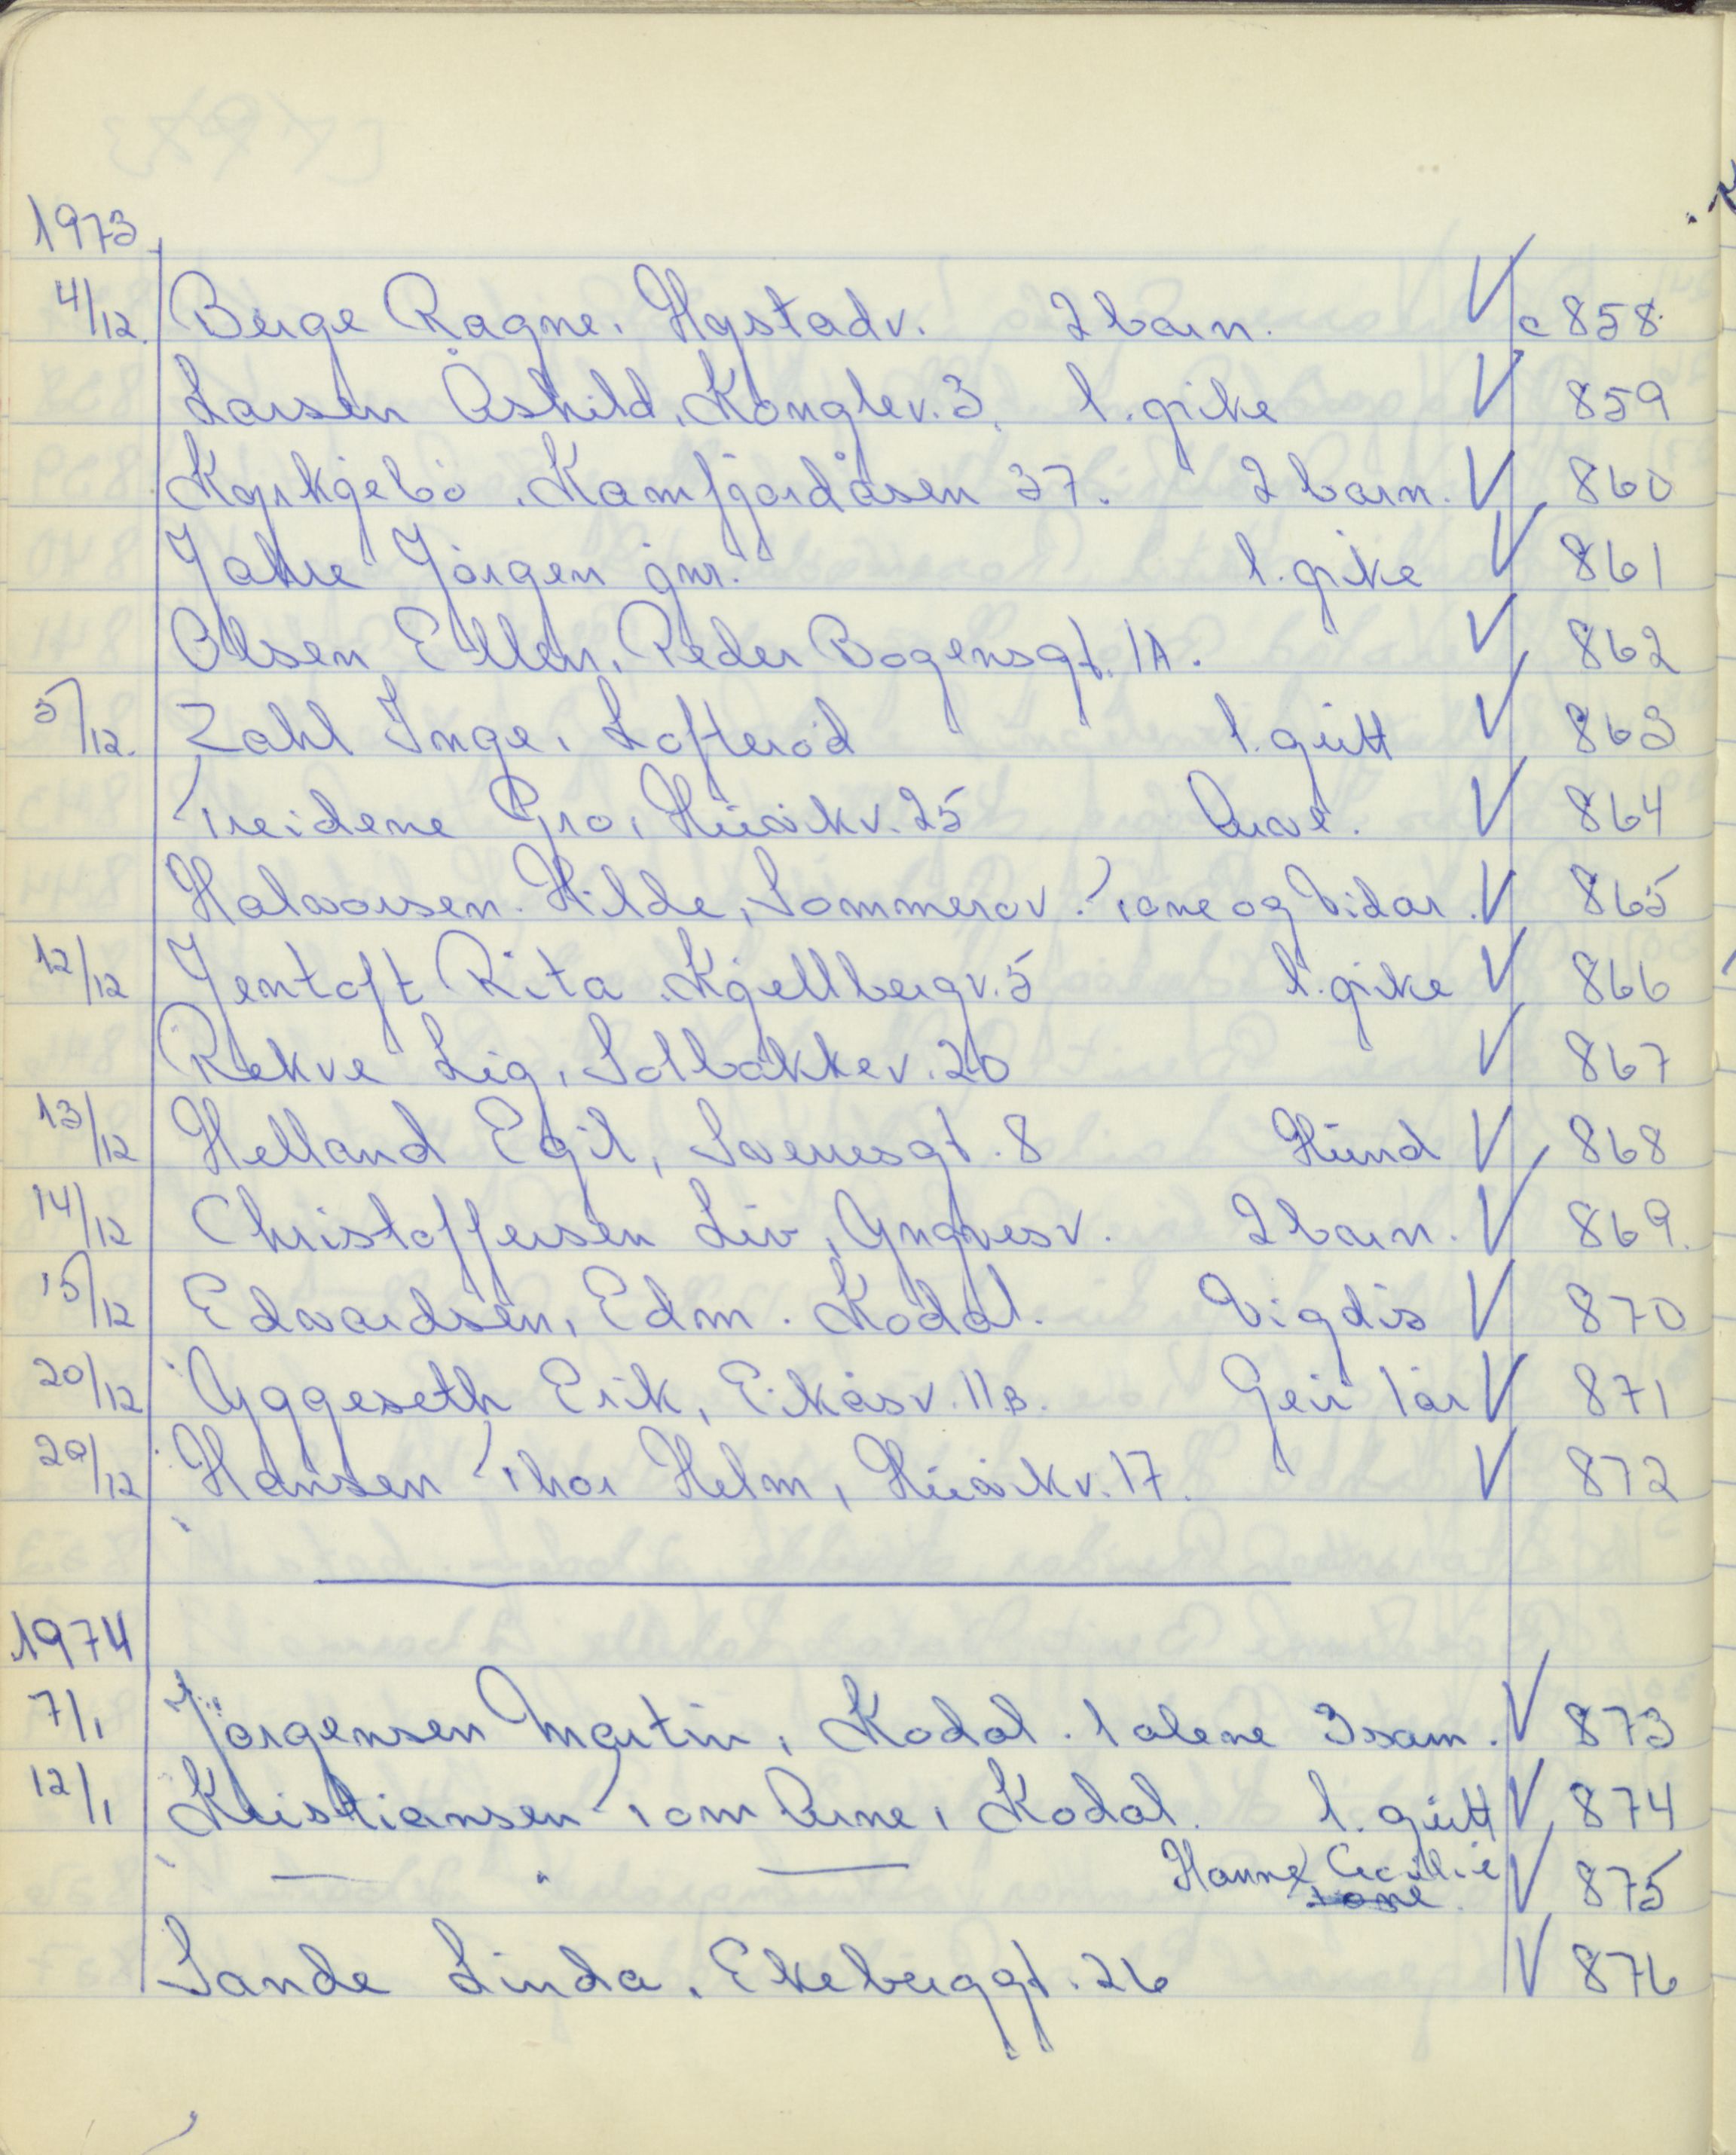 1973
4/12. Berge Ragne. Hystadv. 2 barn. V c 858.
Larsen Åshild, Konglev. 3. 1. pike V 859
Kyrkjebö, Kamfjordåsen 37. 2 barn. V 860
Jahre Jörgen jnr. 1. pike V 861
Olsen Ellen, Peder Bogensgt. 1A. V 862
5/12. Zahl Inge, Lofteröd 1. gutt V 863
Treidene Gro, Huvikv. 25 Arve. V 864
Halvorsen Hilde, Sommerov. Tone og Vidar. V 865
12/12 Jentoft Rita. Kjellbergv. 5 1. pike V 866
Rekve Lig, Solbakkev. 20 V 867
13/12 Helland Egil, Sverresgt. 8 Hund V 868
14/12 Christoffersen Liv, Yngvesv. 2 barn. V 869.
15/12 Edvardsen, Edm. Kodal. Vigdis V 870
20/12 Yggeseth Erik, Eikåsv. 11B. Geir 1 år V 871
20/12 Hansen Thor Helm, Huvikv. 17. V 872
1974
7/1 Jörgensen Martin, Kodal. 1 alene 3 sam. V 873
12/1 Kristiansen Tom Arne, Kodal. 1. gutt V 874
— " — Hanne Cecilie V 875
Sande Linda, Ekeberggt. 26 V 876